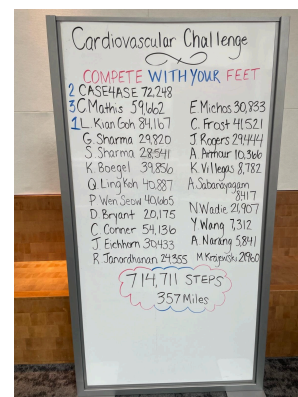 Cardiovascular Challenge
COMPETE WITH YOUR FEET
2 CASE4ASE 72,248
3 C Mathis 59,662
1 L. Kian Goh 84,167
G. Sharma 29,820
S. Sharma 28,541
K. Boegel 39,856
Q Ling Koh 40,887
P Wen Seow 40,665
D. Bryant 20,175
C. Conner 54,136
J Eichhorn 30,433
R. Janardhanan 24,355
E Michos 30,833
C. Frost 41,521
J Rogers 29,444
A Armour 10,366
K Villegas 8,782
A Sabanayagam
8417
N Wadie 21,907
Y Wang 7,312
A. Narang 5,841
M Krajewski 21,960
714,711 STEPS
357 Miles